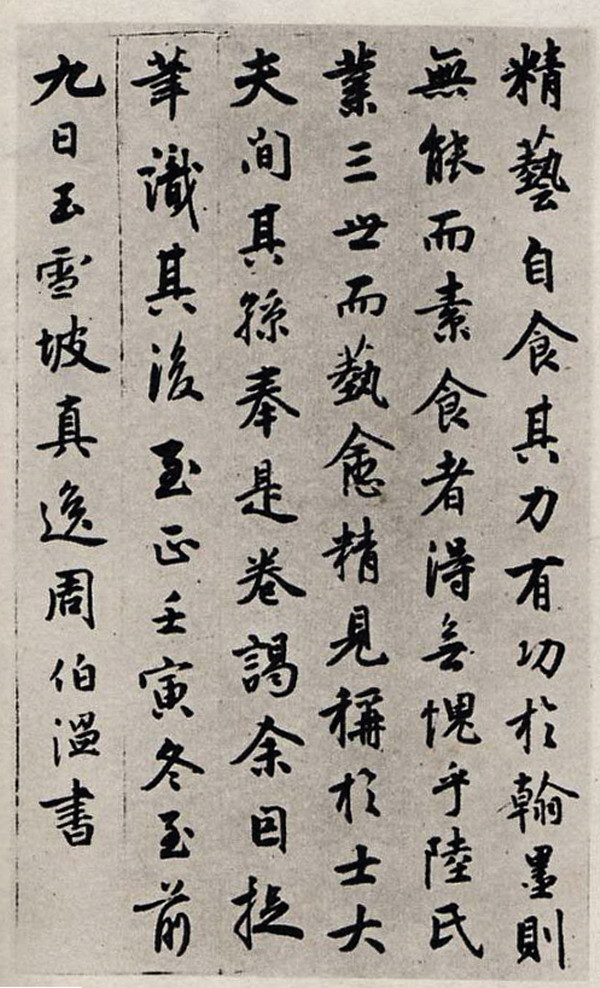 精藝自食其力有功於翰墨則
無能而素食者得無愧乎陸氏
業三世而藝愈精見稱於士大
夫間其孫奉是卷謁余因捉
筆識其後至正壬寅冬至前
九日玉雪坡真逸周伯溫書